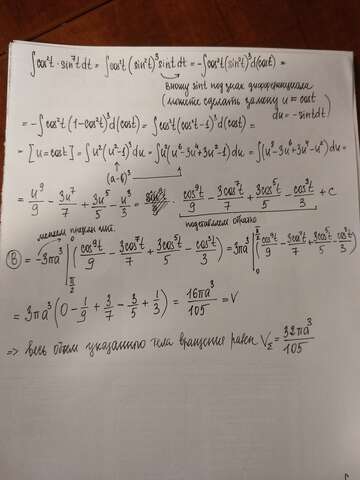 ∫cos²t · sin⁷t dt = ∫cos²t (sin²t)³ sint dt = -∫cos²t (sin²t)³ d(cost) =
вношу sint под знак дифференциала
(можете сделать замену u = cost
du = -sintdt)
= -∫cos²t (1-cos²t)³ d(cost) = ∫cos²t (cos²t-1)³ d(cost) =
= [u = cost] = ∫u²(u²-1)³du = ∫u²(u⁶-3u⁴+3u²-1)du = ∫(u⁸-3u⁶+3u⁴-u²)du =
(a-b)³
= u⁹/9 - 3u⁷/7 + 3u⁵/5 - u³/3 = cos⁹t/9 - 3cos⁷t/7 + 3cos⁵t/5 - cos³t/3 + C
подставляем обратно
меняем пределы инт.
В = -3πa³ |₀ π/2 (cos⁹t/9 - 3cos⁷t/7 + 3cos⁵t/5 - cos³t/3) = 3πa³ |₀ π/2 (cos⁹t/9 - 3cos⁷t/7 + 3cos⁵t/5 - cos³t/3)
= 3πa³ (0 - 1/9 + 3/7 - 3/5 + 1/3) = 16πa³/105 = V
=> весь объем указанного тела вращения равен V_Σ = 32πa³/105